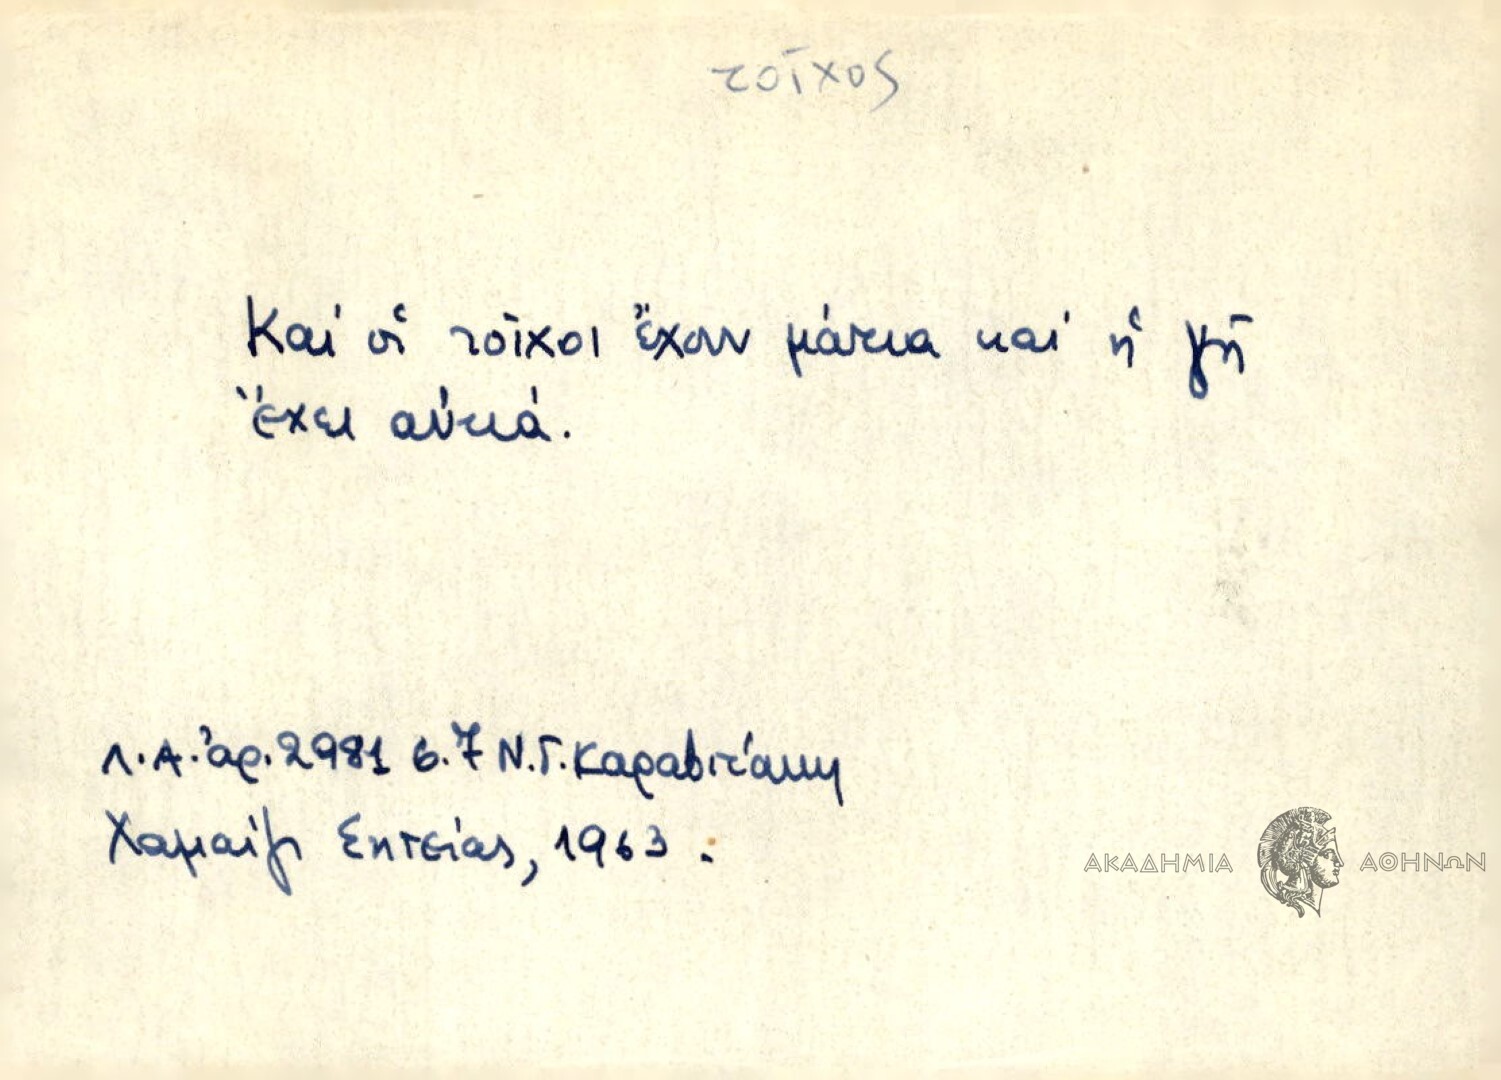 τοῖχος
Καί οἱ τοῖχοι ἔχουν μάτια καί ἡ γῆ
ἔχει αὐτιά.
Λ.Α. ἀρ. 2981 σ. 7 Ν. Γ. Καραβιτάκη
Χαμαίζι Σητείας, 1963.
ΑΚΑΔΗΜΙΑ ΑΘΗΝΩΝ